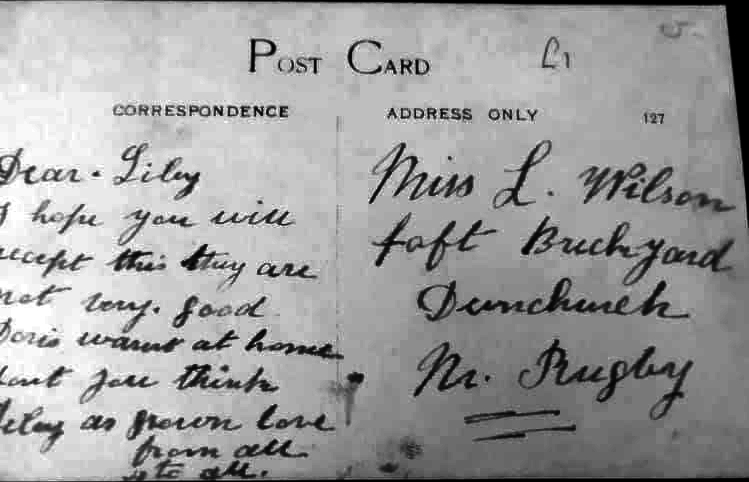 POST CARD
£1
CORRESPONDENCE
ADDRESS ONLY
127
Dear. Lily
I hope you will
accept this they are
not very. good
Doris warnt at home
dont you think
Lily as grown love
from all
to all.
Miss L. Wilson
toft Brickyard
Dunchurch
Nr. Rugby